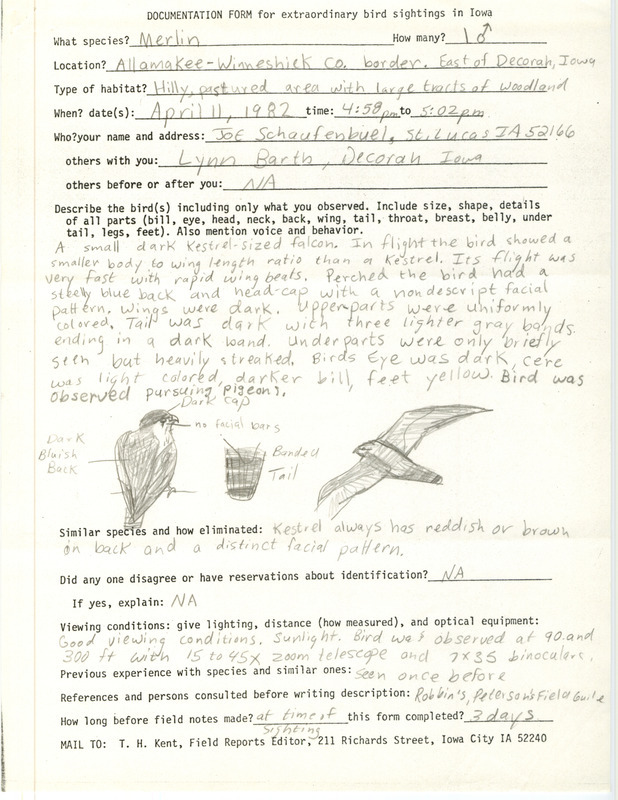 DOCUMENTATION FORM for extraordinary bird sightings in Iowa
What species? Merlin How many? 1 ♂
Location? Allamakee-Winneshiek Co. border. East of Decorah, Iowa
Type of habitat? Hilly, pastured area with large tracts of woodland
When? date(s): April 11, 1982 time: 4:58 pm to 5:02 pm
Who? your name and address: Joe Schaufenbuel, St. Lucas IA 52166
others with you: Lynn Barth, Decorah Iowa
others before or after you: NA
Describe the bird(s) including only what you observed. Include size, shape, details
of all parts (bill, eye, head, neck, back, wing, tail, throat, breast, belly, under
tail, legs, feet). Also mention voice and behavior.
A small dark Kestrel-sized falcon. In flight the bird showed a
smaller body to wing length ratio than a Kestrel. Its flight was
very fast with rapid wing beats. Perched the bird had a
steely blue back and head-cap with a nondescript facial
pattern. Wings were dark. Upperparts were uniformly
colored. Tail was dark with three lighter gray bands
ending in a dark band. Underparts were only briefly
seen but heavily streaked. Birds Eye was dark, cere
was light colored, darker bill, feet yellow. Bird was
observed pursuing pigeons.
Dark cap
no facial bars
Dark
Bluish
Back
Banded
Tail
Similar species and how eliminated: Kestrel always has reddish or brown
on back and a distinct facial pattern.
Did any one disagree or have reservations about identification? NA
If yes, explain: NA
Viewing conditions: give lighting, distance (how measured), and optical equipment:
Good viewing conditions. Sunlight. Bird was observed at 90 and
300 ft with 15 to 45x zoom telescope and 7x35 binoculars.
Previous experience with species and similar ones: seen once before
References and persons consulted before writing description: Robbin's, Peterson's Field Guide
How long before field notes made? at time of this form completed? 3 days
sighting
MAIL TO: T. H. Kent, Field Reports Editor, 211 Richards Street, Iowa City IA 52240